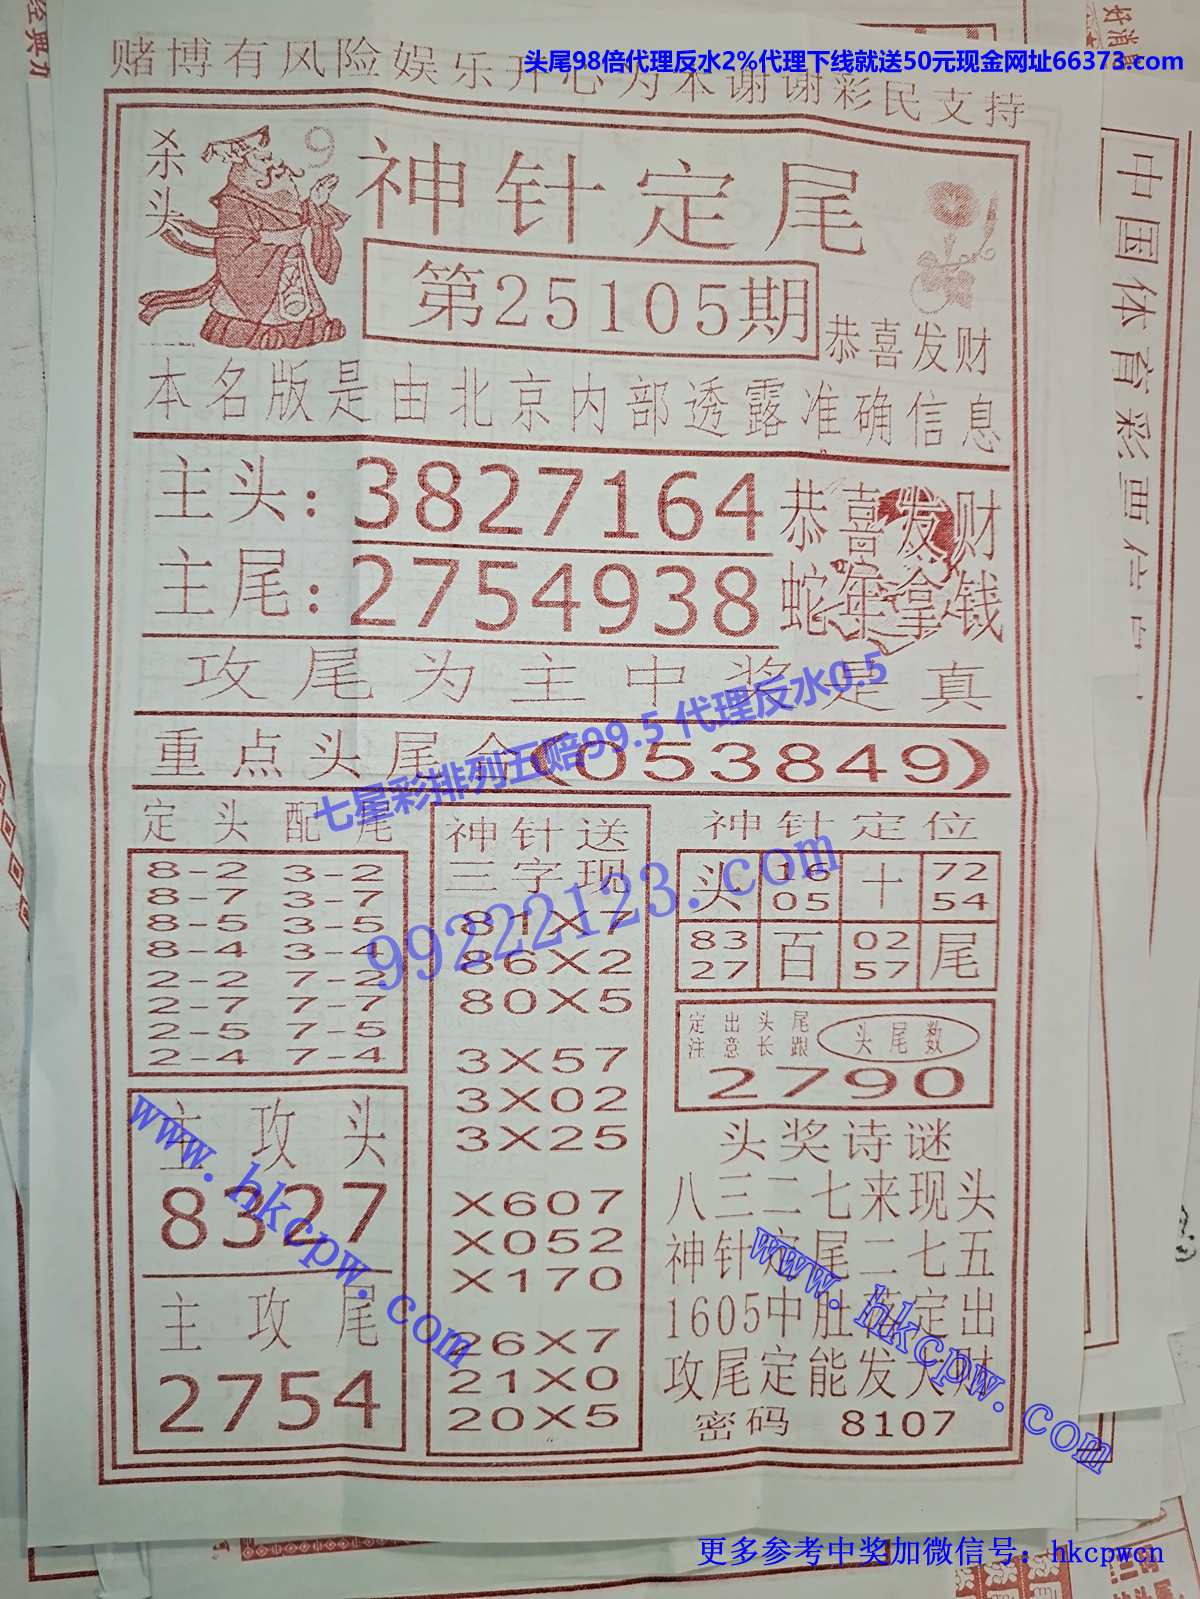 头尾98倍代理反水2%代理下线就送50元现金网址66373.com
赌博有风险娱乐开心为本谢谢彩民支持
杀头
9
神针定尾
第25105期
恭喜发财
本名版是由北京内部透露准确信息
主头：3827164
恭喜发财
主尾：2754938
蛇年拿钱
攻尾为主中奖是真
重点头尾合(053849)
七星彩排列五赔99.5 代理反水0.5
99222123.com
定头配尾
8-2 3-2
8-7 3-7
8-5 3-5
8-4 3-4
2-2 7-2
2-7 7-7
2-5 7-5
2-4 7-4
主攻头
8327
主攻尾
2754
神针送
三字现
81X7
86X2
80X5
3X57
3X02
3X25
X607
X052
X170
26X7
21X0
20X5
神针定位
头 16 十 72
05 54
83 百 02 尾
27 57
定出头尾
注意长跟
头尾数
2790
头奖诗谜
八三二七来现头
神针定尾二七五
1605中肚藏定出
攻尾定能发大财
密码 8107
www.hkcpw.com
www.hkcpw.com
更多参考中奖加微信号：hkcpwcn
中国体育彩
好消息